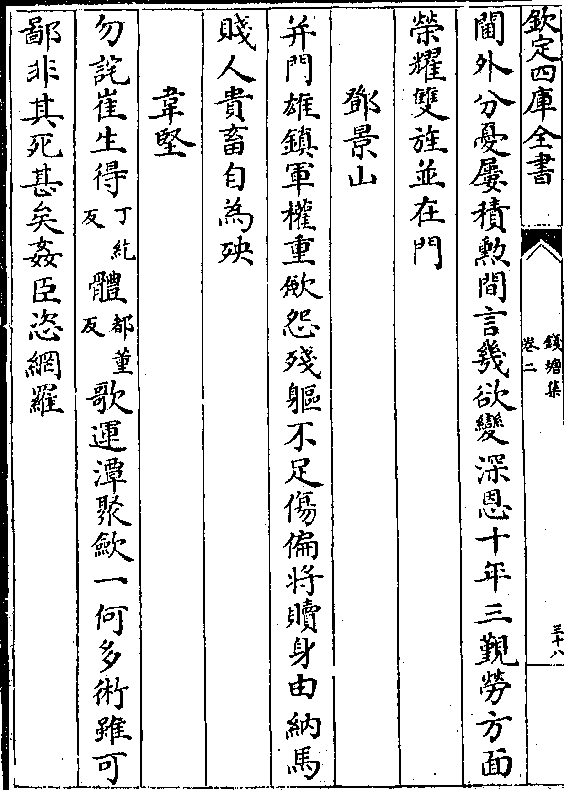 欽定四庫全書
錢塘集
卷二
三十八
閫外分憂屢積勲間言幾欲變深恩十年三覲勞方面
榮耀雙旌並在門
鄧景山
并門雄鎮軍權重斂怨殘軀不足傷偏將贖身由納馬
賤人貴畜自為殃
韋堅
勿詫崔生得丁紇反體都董反歌運潭聚斂一何多術雖可
鄙非其死甚矣姦臣恣網羅